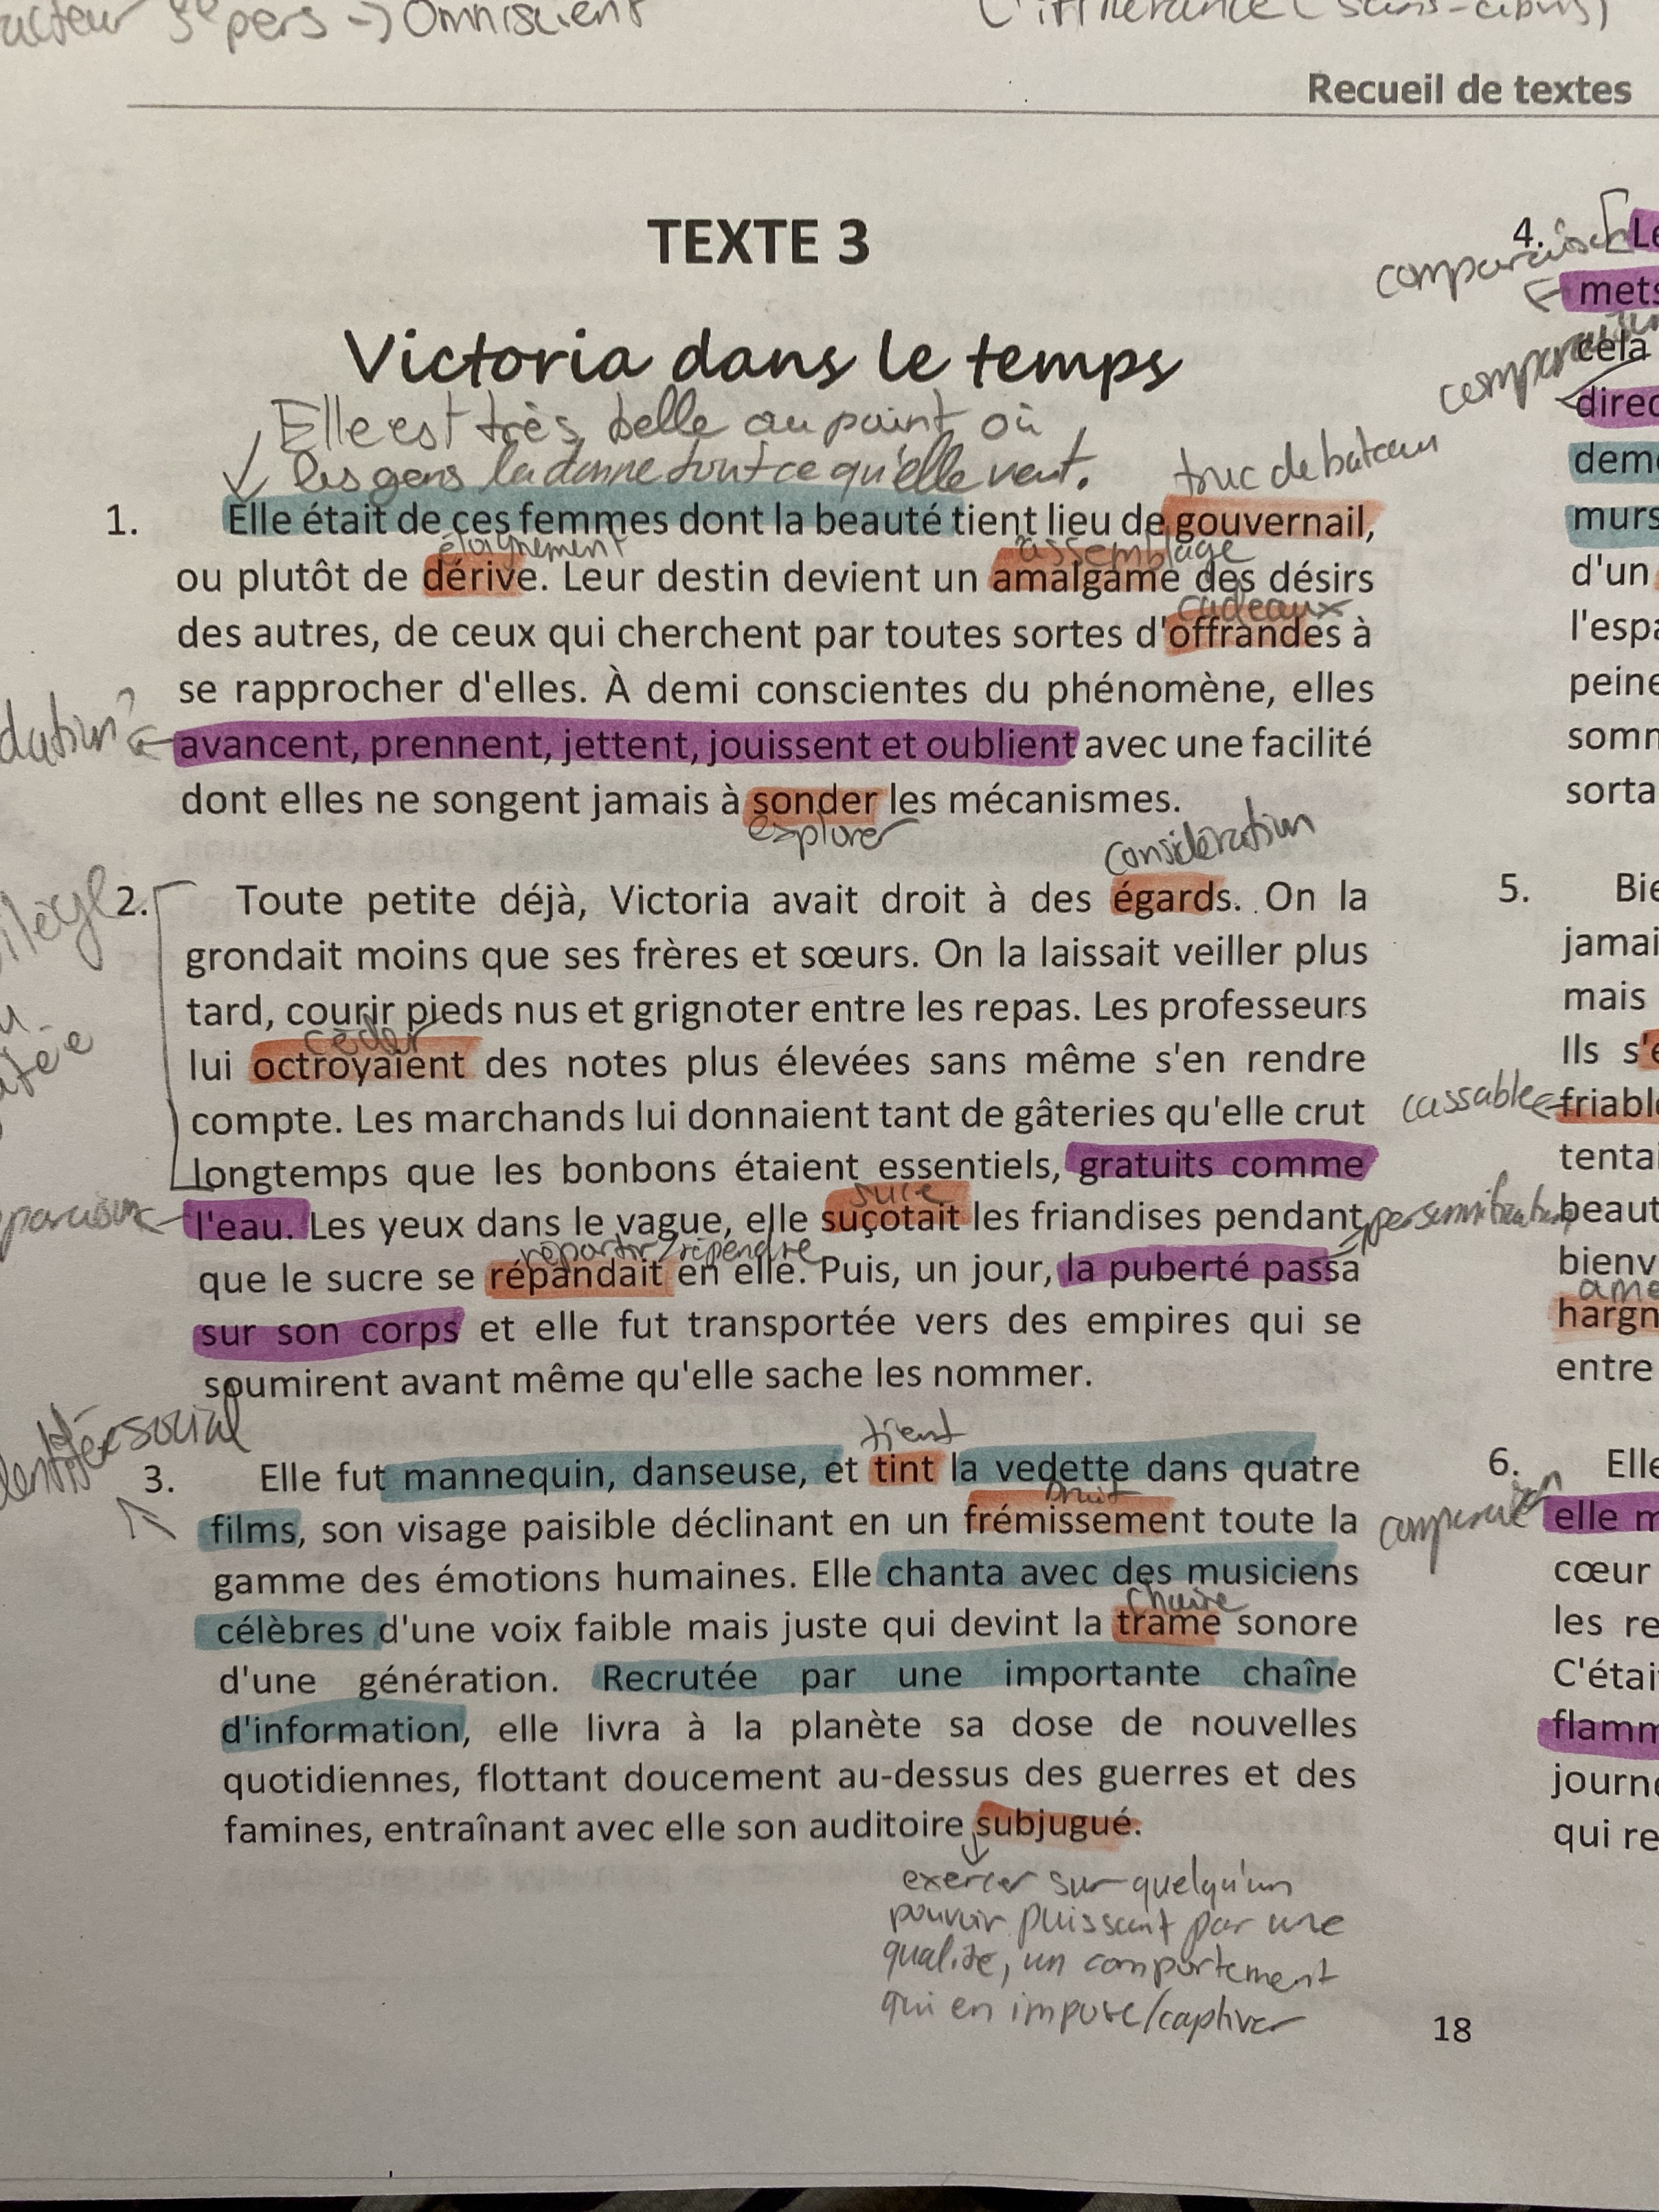 3e pers -> Omniscient
Recueil de textes
TEXTE 3
Victoria dans le temps
Elle est très belle au point où
les gens la donne tout ce qu'elle veut.
truc de bateau
1. Elle était de ces femmes dont la beauté tient lieu de gouvernail,
éloignement
assemblage
ou plutôt de dérive. Leur destin devient un amalgame des désirs
cadeaux
des autres, de ceux qui cherchent par toutes sortes d'offrandes à
se rapprocher d'elles. À demi conscientes du phénomène, elles
dation?
avancent, prennent, jettent, jouissent et oublient avec une facilité
dont elles ne songent jamais à sonder les mécanismes.
explorer
considération
2. Toute petite déjà, Victoria avait droit à des égards. On la
grondait moins que ses frères et sœurs. On la laissait veiller plus
tard, courir pieds nus et grignoter entre les repas. Les professeurs
céder
lui octroyaient des notes plus élevées sans même s'en rendre
compte. Les marchands lui donnaient tant de gâteries qu'elle crut
longtemps que les bonbons étaient essentiels, gratuits comme
suce
l'eau. Les yeux dans le vague, elle suçotait les friandises pendant
personnification
répartir/répendre
que le sucre se répandait en elle. Puis, un jour, la puberté passa
sur son corps et elle fut transportée vers des empires qui se
soumirent avant même qu'elle sache les nommer.
social
tient
3. Elle fut mannequin, danseuse, et tint la vedette dans quatre
bruit
films, son visage paisible déclinant en un frémissement toute la
gamme des émotions humaines. Elle chanta avec des musiciens
célèbres d'une voix faible mais juste qui devint la trame sonore
d'une génération. Recrutée par une importante chaîne
d'information, elle livra à la planète sa dose de nouvelles
quotidiennes, flottant doucement au-dessus des guerres et des
famines, entraînant avec elle son auditoire subjugué.
exercer sur quelqu'un
pouvoir puissant par une
qualité, un comportement
qui en impose/captiver
18
4. Le
comparaison
mets
cela
comparaison
direc
dem
murs
d'un
l'espa
peine
somn
sorta
5. Bie
jamai
mais
Ils s'e
cassable
friabl
tentai
beaut
bienv
ame
hargn
entre
6. Elle
comparaison
elle m
cœur
les re
C'étai
flamm
journ
qui re